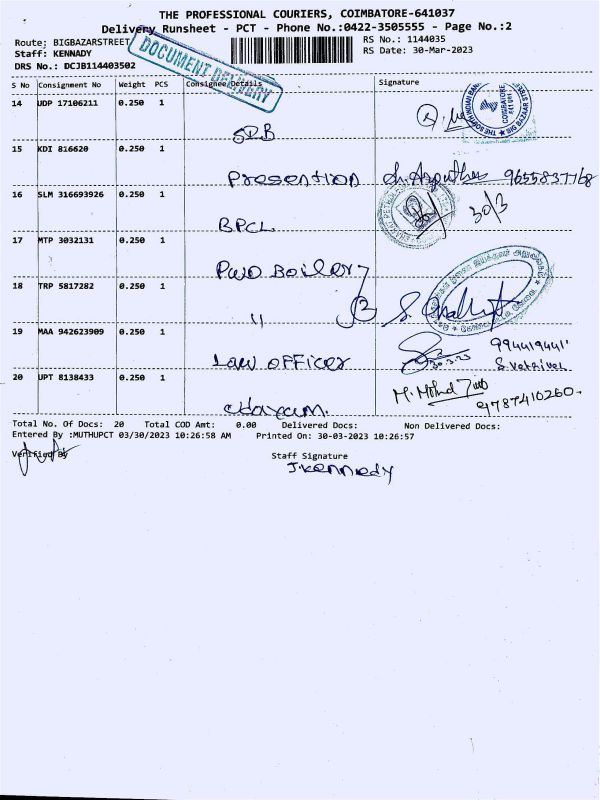 THE PROFESSIONAL COURIERS, COIMBATORE-641037
Delivery Runsheet - PCT - Phone No.:0422-3505555 - Page No.:2
Route; BIGBAZARSTREET
RS No.: 1144035
Staff: KENNADY
RS Date: 30-Mar-2023
DRS No.: DCJB114403502
DOCUMENT DELIVERY
S No Consignment No Weight PCS Consignee Details Signature
14 UDP 17106211 0.250 1
15 KDI 816620 0.250 1
Presention 9655837768
16 SLM 316693926 0.250 1
30/3
BPCL
17 MTP 3032131 0.250 1
PWD Boilery
18 TRP 5817282 0.250 1
"
19 MAA 942623909 0.250 1
994419441'
Law officer 30.3.23 S.Vetrivel
20 UPT 8138433 0.250 1
M. Mohd
9787410260-
udayam.
Total No. Of Docs: 20 Total COD Amt: 0.00 Delivered Docs: Non Delivered Docs:
Entered By :MUTHUPCT 03/30/2023 10:26:58 AM Printed On: 30-03-2023 10:26:57
Verified By
Staff Signature
J.Kennedy